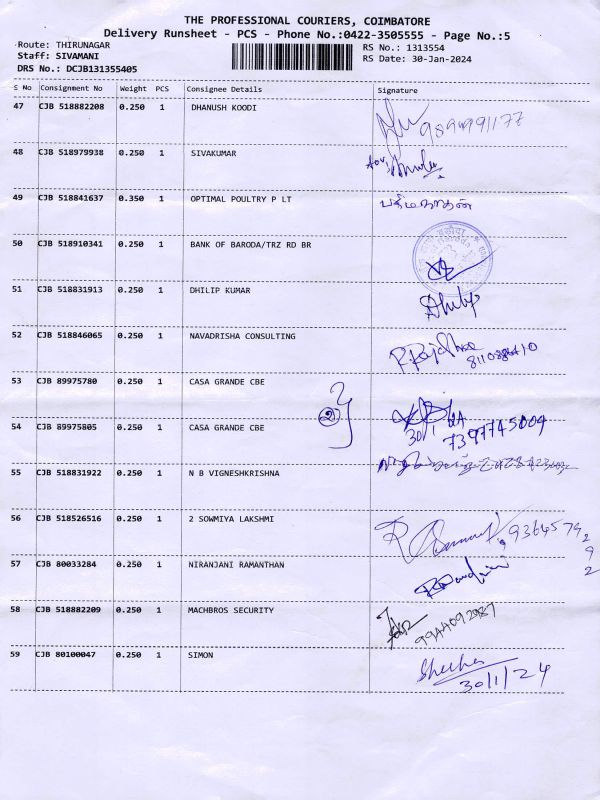 THE PROFESSIONAL COURIERS, COIMBATORE
Delivery Runsheet - PCS - Phone No.:0422-3505555 - Page No.:5
Route: THIRUNAGAR RS No.: 1313554
Staff: SIVAMANI RS Date: 30-Jan-2024
DRS No.: DCJB131355405
S No Consignment No Weight PCS Consignee Details Signature
47 CJB 518882208 0.250 1 DHANUSH KOODI
48 CJB 518979938 0.250 1 SIVAKUMAR
49 CJB 518841637 0.350 1 OPTIMAL POULTRY P LT
50 CJB 518910341 0.250 1 BANK OF BARODA/TRZ RD BR
51 CJB 518831913 0.250 1 DHILIP KUMAR Dhilip
52 CJB 518846065 0.250 1 NAVADRISHA CONSULTING
53 CJB 89975780 0.250 1 CASA GRANDE CBE
54 CJB 89975805 0.250 1 CASA GRANDE CBE 30/1 7397745004
55 CJB 518831922 0.250 1 N B VIGNESHKRISHNA
56 CJB 518526516 0.250 1 2 SOWMIYA LAKSHMI 9364579292
57 CJB 80033284 0.250 1 NIRANJANI RAMANTHAN
58 CJB 518882209 0.250 1 MACHBROS SECURITY 9944092987
59 CJB 80100047 0.250 1 SIMON
30/1/24